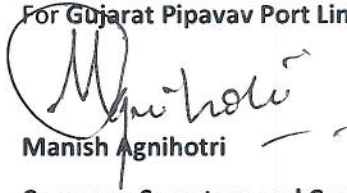 For Gujarat Pipavav Port Lim
Agnihotri
Manish Agnihotri